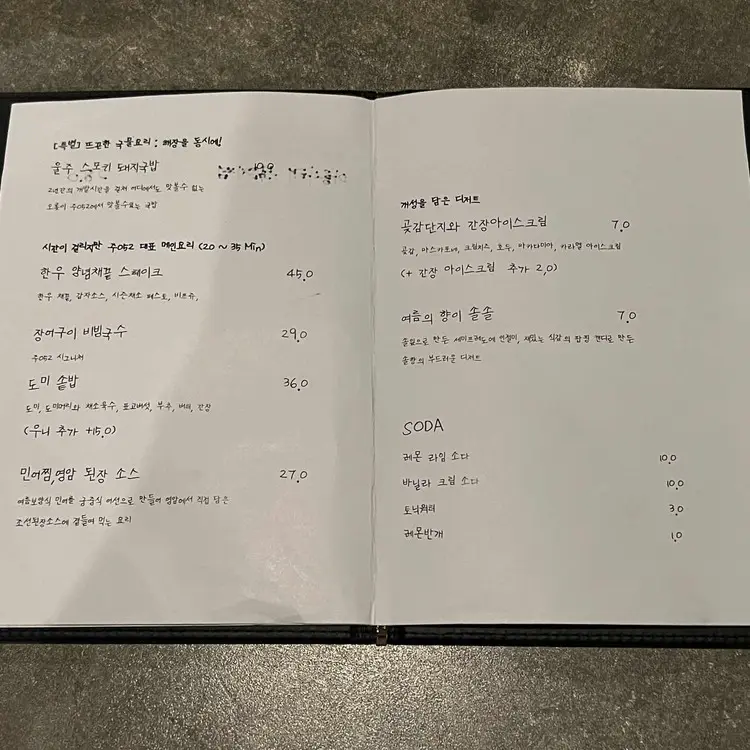 [특별] 뜨끈한 국물요리 : 해장을 동시에!
울주 스모키 돼지국밥 19.9
2년간의 개발시간을 걸쳐 어디에서도 맛볼수 없는
오롯이 주052에서 맛볼수있는 국밥
시간이 걸리지만 주052 대표 메인요리 (20 ~ 35 Min)
한우 양념채끝 스테이크 45.0
한우 채끝, 감자소스, 시즌채소 페스토, 비쥬류,
장어구이 비빔국수 29.0
주052 시그니처
도미 솥밥 36.0
도미, 도미머리와 채소육수, 표고버섯, 부추, 버터, 간장
(우니 추가 +15.0)
민어찜, 영암 된장 소스 27.0
여름보양식 민어를 궁중식 어선으로 만들어 영암에서 직접 담은
조선된장소스에 곁들여 먹는 요리
개성을 담은 디저트
곶감단지와 간장아이스크림 7.0
곶감, 마스카포네, 크림치즈, 호두, 마카다미아, 카라멜 아이스크림
(+ 간장 아이스크림 추가 2.0)
여름의 향이 솔솔 7.0
솔잎으로 만든 세미프레도에 선젤이, 재밌는 식감의 팝핑 캔디로 만든
솔향의 부드러운 디저트
SODA
레몬 라임 소다 10.0
바닐라 크림 소다 10.0
토닉워터 3.0
레몬반개 1.0